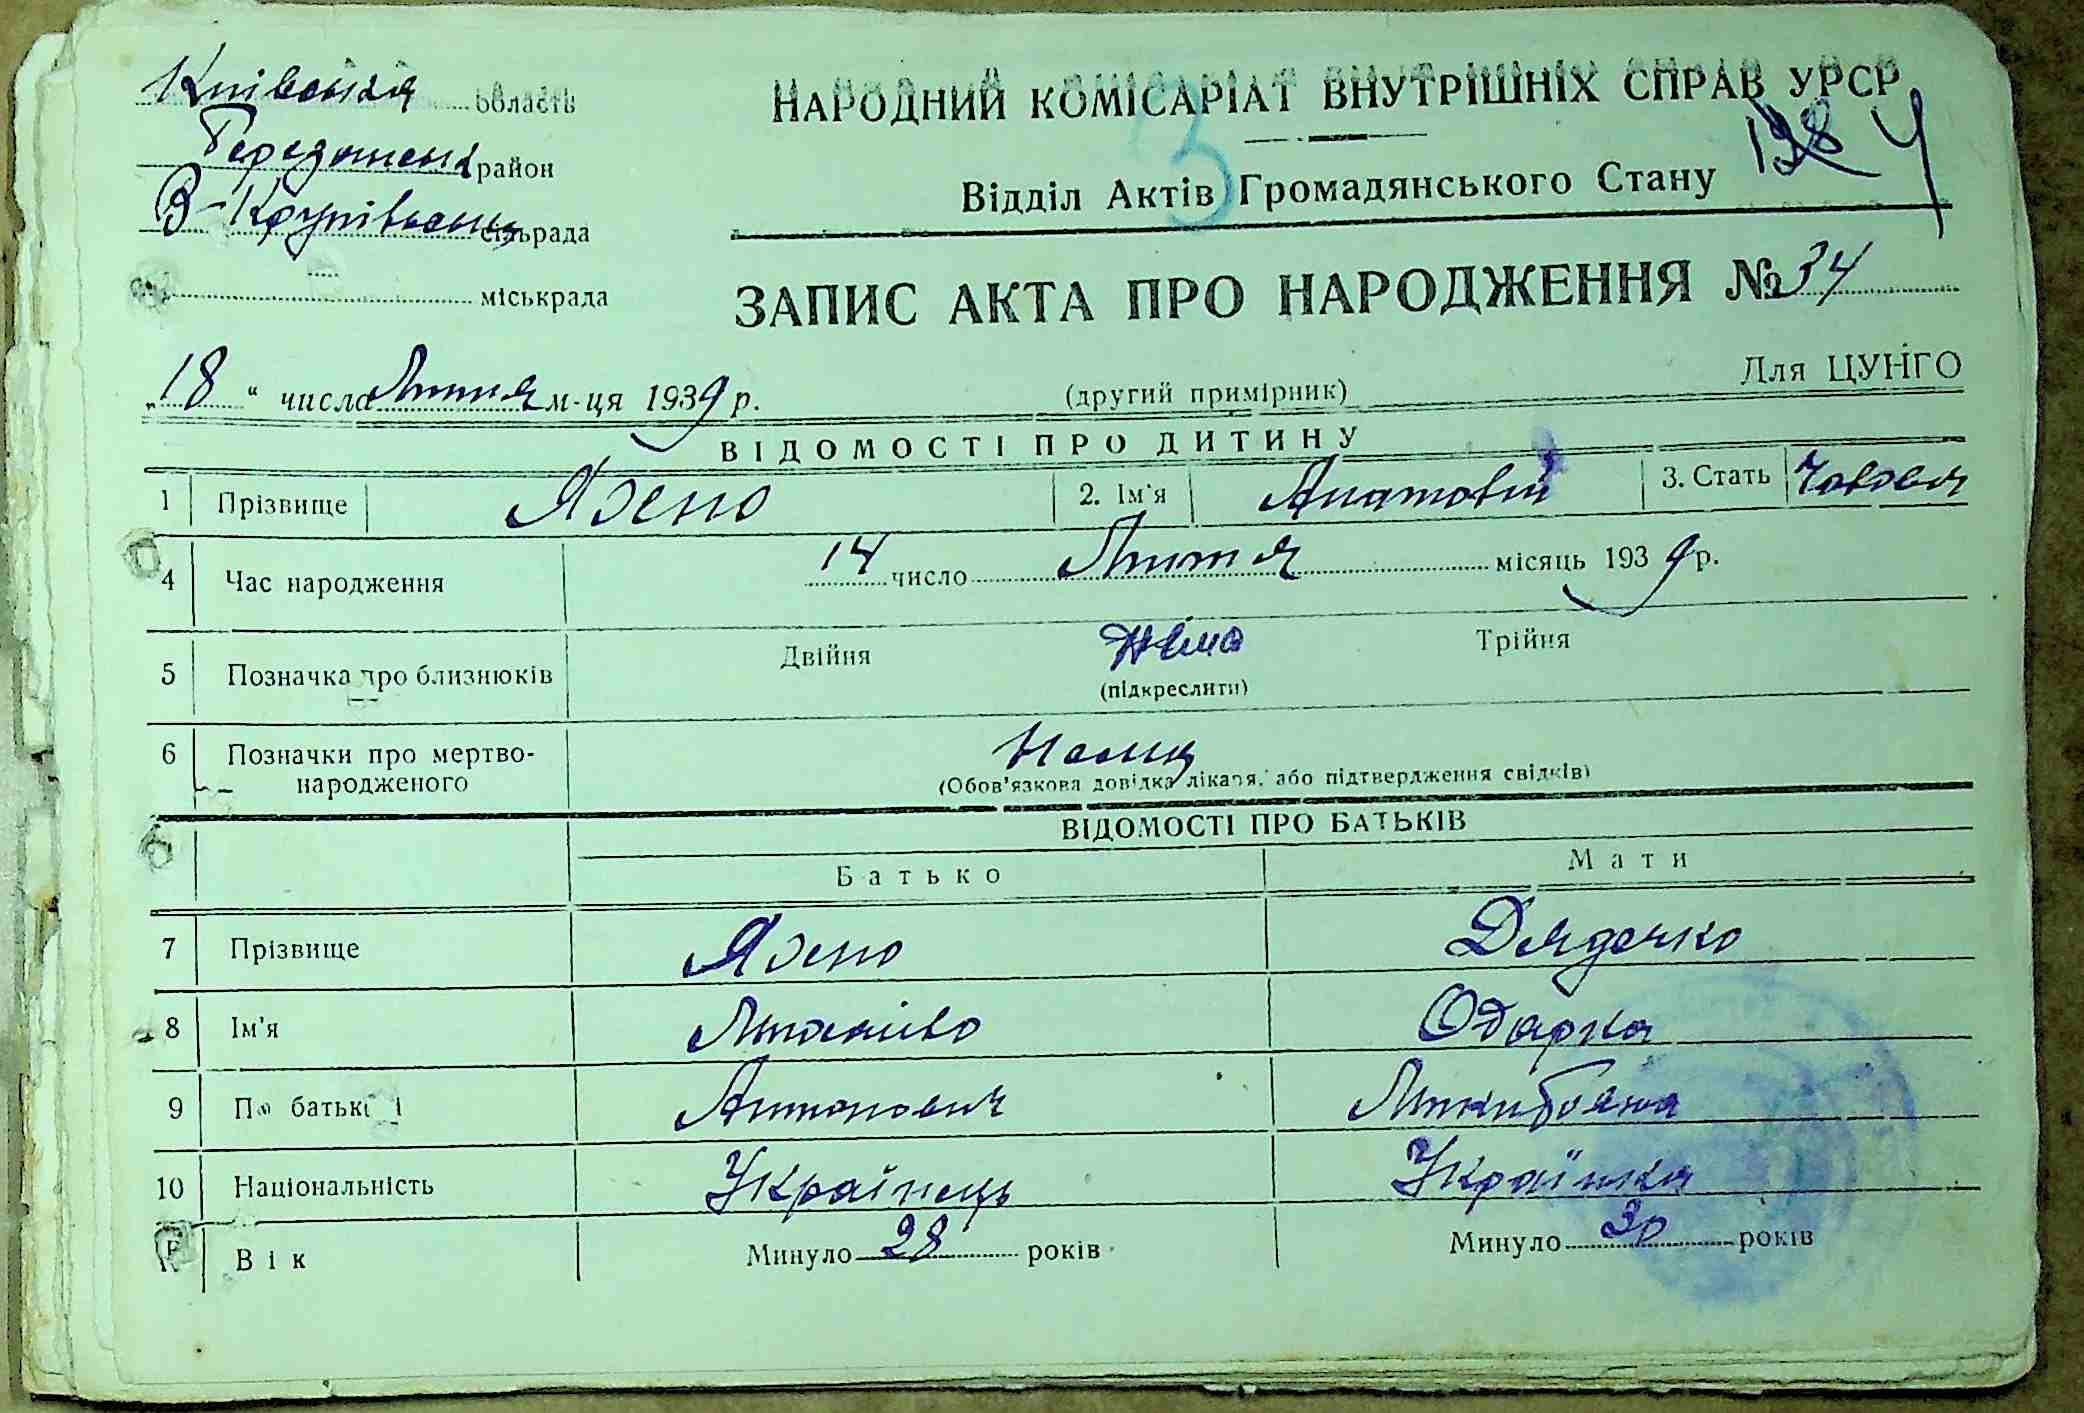 Київська область
район
В-Крупівська сільрада
міськрада
НАРОДНИЙ КОМІСАРІАТ ВНУТРІШНІХ СПРАВ УРСР
3
Відділ Актів Громадянського Стану
ЗАПИС АКТА ПРО НАРОДЖЕННЯ №34
„18“ числа Лютня м-ця 1939 р.
(другий примірник)
Для ЦУНГО
ВІДОМОСТІ ПРО ДИТИНУ
1 Прізвище Яхно 2. Ім'я Анатолій 3. Стать
4 Час народження 14 число Лютня місяць 1939 р.
5 Позначка про близнюків Двійня Нема Трійня
(підкреслити)
6 Позначки про мертво-
народженого
(Обов'язкова довідка лікаря або підтвердження свідків)
ВІДОМОСТІ ПРО БАТЬКІВ
Батько Мати
7 Прізвище Яхно Дядечко
8 Ім'я Одарка
9 По батькові Антонович
10 Національність Українець Українка
Вік Минуло 28 років Минуло 30 років